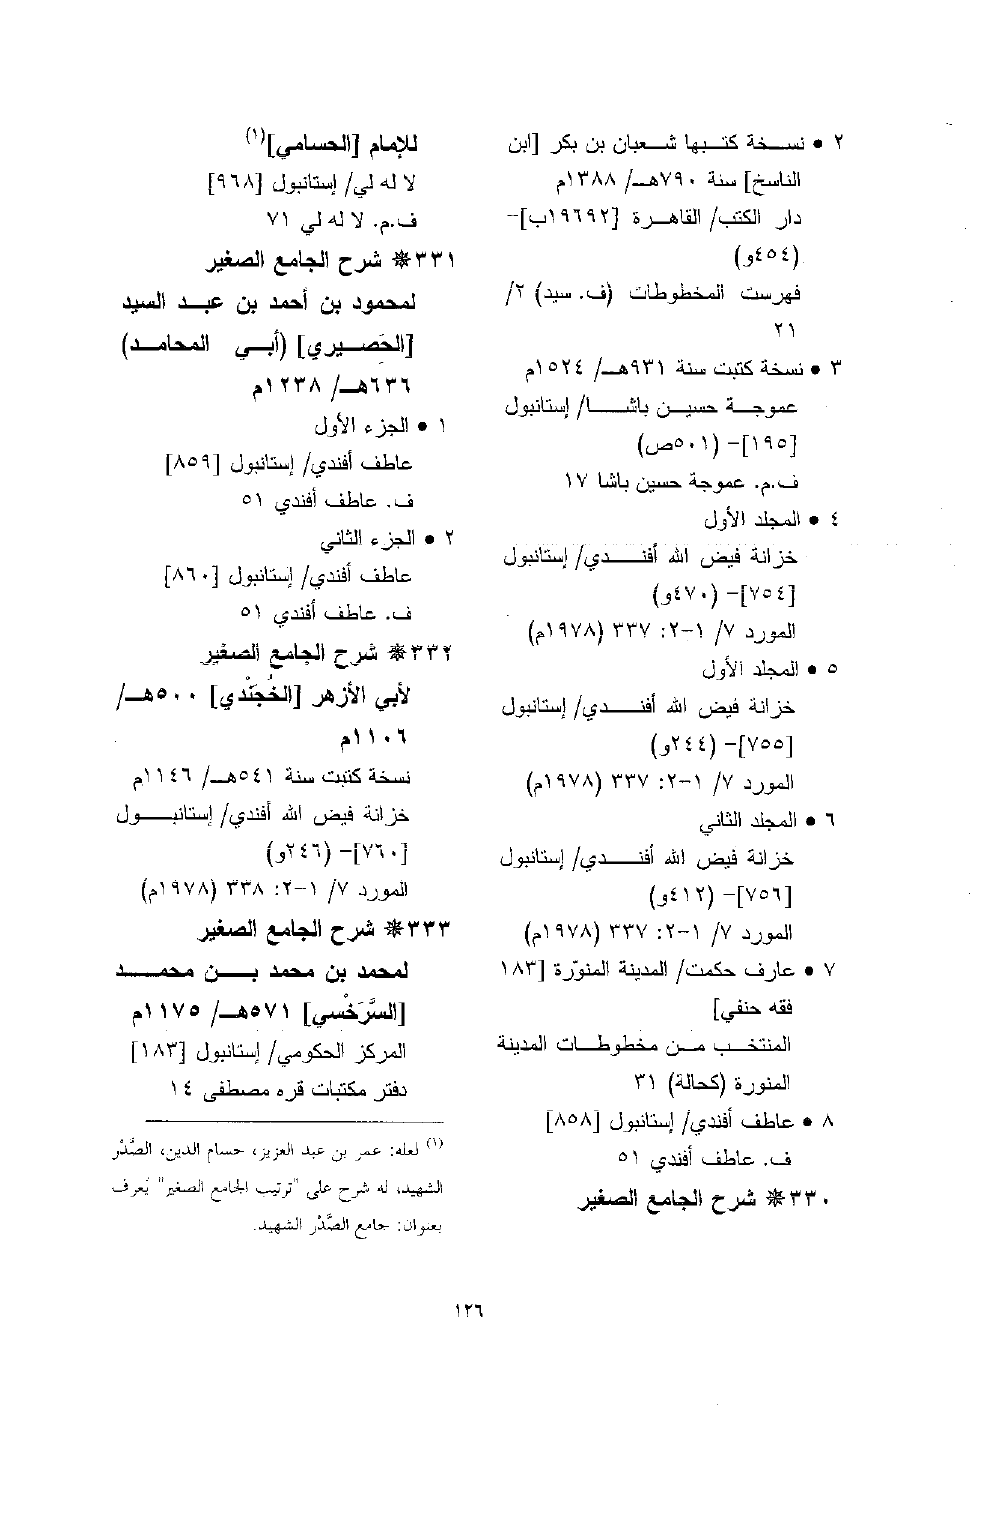 ٢ • نسخة كتبها شعبان بن بكر [ابن
الناسخ] سنة ٧٩٠هـ/ ١٣٨٨م
دار الكتب/ القاهرة [١٩٦٩٢ب]-
(٤٥٤و)
فهرست المخطوطات (ف. سيد) ٢/
٢١
٣ • نسخة كتبت سنة ٩٣١هـ/ ١٥٢٤م
عموجة حسين باشا/ إستانبول
[١٩٥]- (٥٠١ص)
ف.م. عموجة حسين باشا ١٧
٤ • المجلد الأول
خزانة فيض الله أفندي/ إستانبول
[٧٥٤]- (٤٧٠و)
المورد ٧/ ١-٢: ٣٣٧ (١٩٧٨م)
٥ • المجلد الأول
خزانة فيض الله أفندي/ إستانبول
[٧٥٥]- (٢٤٤و)
المورد ٧/ ١-٢: ٣٣٧ (١٩٧٨م)
٦ • المجلد الثاني
خزانة فيض الله أفندي/ إستانبول
[٧٥٦]- (٤١٢و)
المورد ٧/ ١-٢: ٣٣٧ (١٩٧٨م)
٧ • عارف حكمت/ المدينة المنوّرة [١٨٣
فقه حنفي]
المنتخب من مخطوطات المدينة
المنورة (كحالة) ٣١
٨ • عاطف أفندي/ إستانبول [٨٥٨]
ف. عاطف أفندي ٥١
٣٣٠* شرح الجامع الصغير
للإمام [الحسامي](١)
لا له لي/ إستانبول [٩٦٨]
ف.م. لا له لي ٧١
٣٣١* شرح الجامع الصغير
لمحمود بن أحمد بن عبد السيد
[الحَصيري] (أبي المحامد)
٦٣٦هـ/ ١٢٣٨م
١ • الجزء الأول
عاطف أفندي/ إستانبول [٨٥٩]
ف. عاطف أفندي ٥١
٢ • الجزء الثاني
عاطف أفندي/ إستانبول [٨٦٠]
ف. عاطف أفندي ٥١
٣٣٢* شرح الجامع الصغير
لأبي الأزهر [الخُجَنْدي] ٥٠٠هـ/
١١٠٦م
نسخة كتبت سنة ٥٤١هـ/ ١١٤٦م
خزانة فيض الله أفندي/ إستانبول
[٧٦٠]- (٢٤٦و)
المورد ٧/ ١-٢: ٣٣٨ (١٩٧٨م)
٣٣٣* شرح الجامع الصغير
لمحمد بن محمد بن محمد
[السَّرَخْسي] ٥٧١هـ/ ١١٧٥م
المركز الحكومي/ إستانبول [١٨٣]
دفتر مكتبات قره مصطفى ١٤
(١) لعله: عمر بن عبد العزيز، حسام الدين، الصَّدْر
الشهيد، له شرح على "ترتيب الجامع الصغير" يُعرف
بعنوان: جامع الصَّدْر الشهيد.
١٢٦